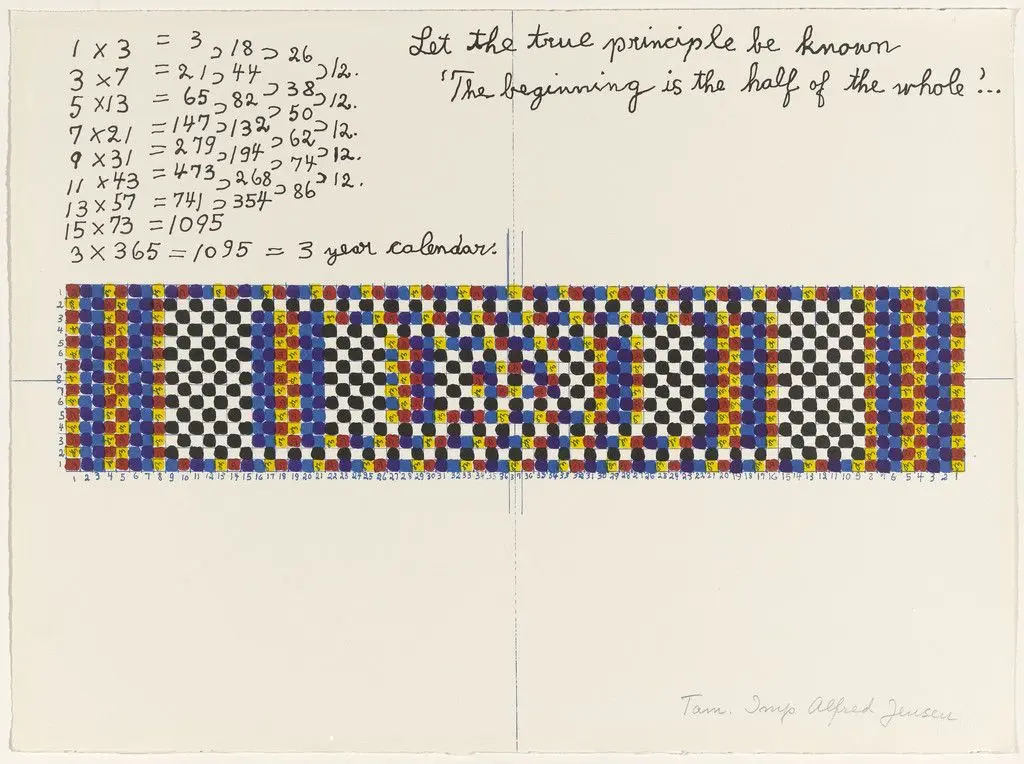 1 x 3 = 3 ⊃ 18 ⊃ 26
3 x 7 = 21 ⊃ 44 ⊃ 12.
5 x 13 = 65 ⊃ 82 ⊃ 38 ⊃ 12.
7 x 21 = 147 ⊃ 132 ⊃ 50 ⊃ 12.
9 x 31 = 279 ⊃ 194 ⊃ 62 ⊃ 12.
11 x 43 = 473 ⊃ 268 ⊃ 74 ⊃ 12.
13 x 57 = 741 ⊃ 354 ⊃ 86
15 x 73 = 1095
3 x 365 = 1095 = 3 year calendar.
Let the true principle be known
'The beginning is the half of the whole'...
1
2
3
4
5
6
7
8
7
6
5
4
3
2
1
1 2 3 4 5 6 7 8 9 10 11 12 13 14 15 16 17 18 19 20 21 22 23 24 25 26 27 28 29 30 31 32 33 34 35 36 37 36 35 34 33 32 31 30 29 28 27 26 25 24 23 22 21 20 19 18 17 16 15 14 13 12 11 10 9 8 7 6 5 4 3 2 1
Tam. Imp Alfred Jensen